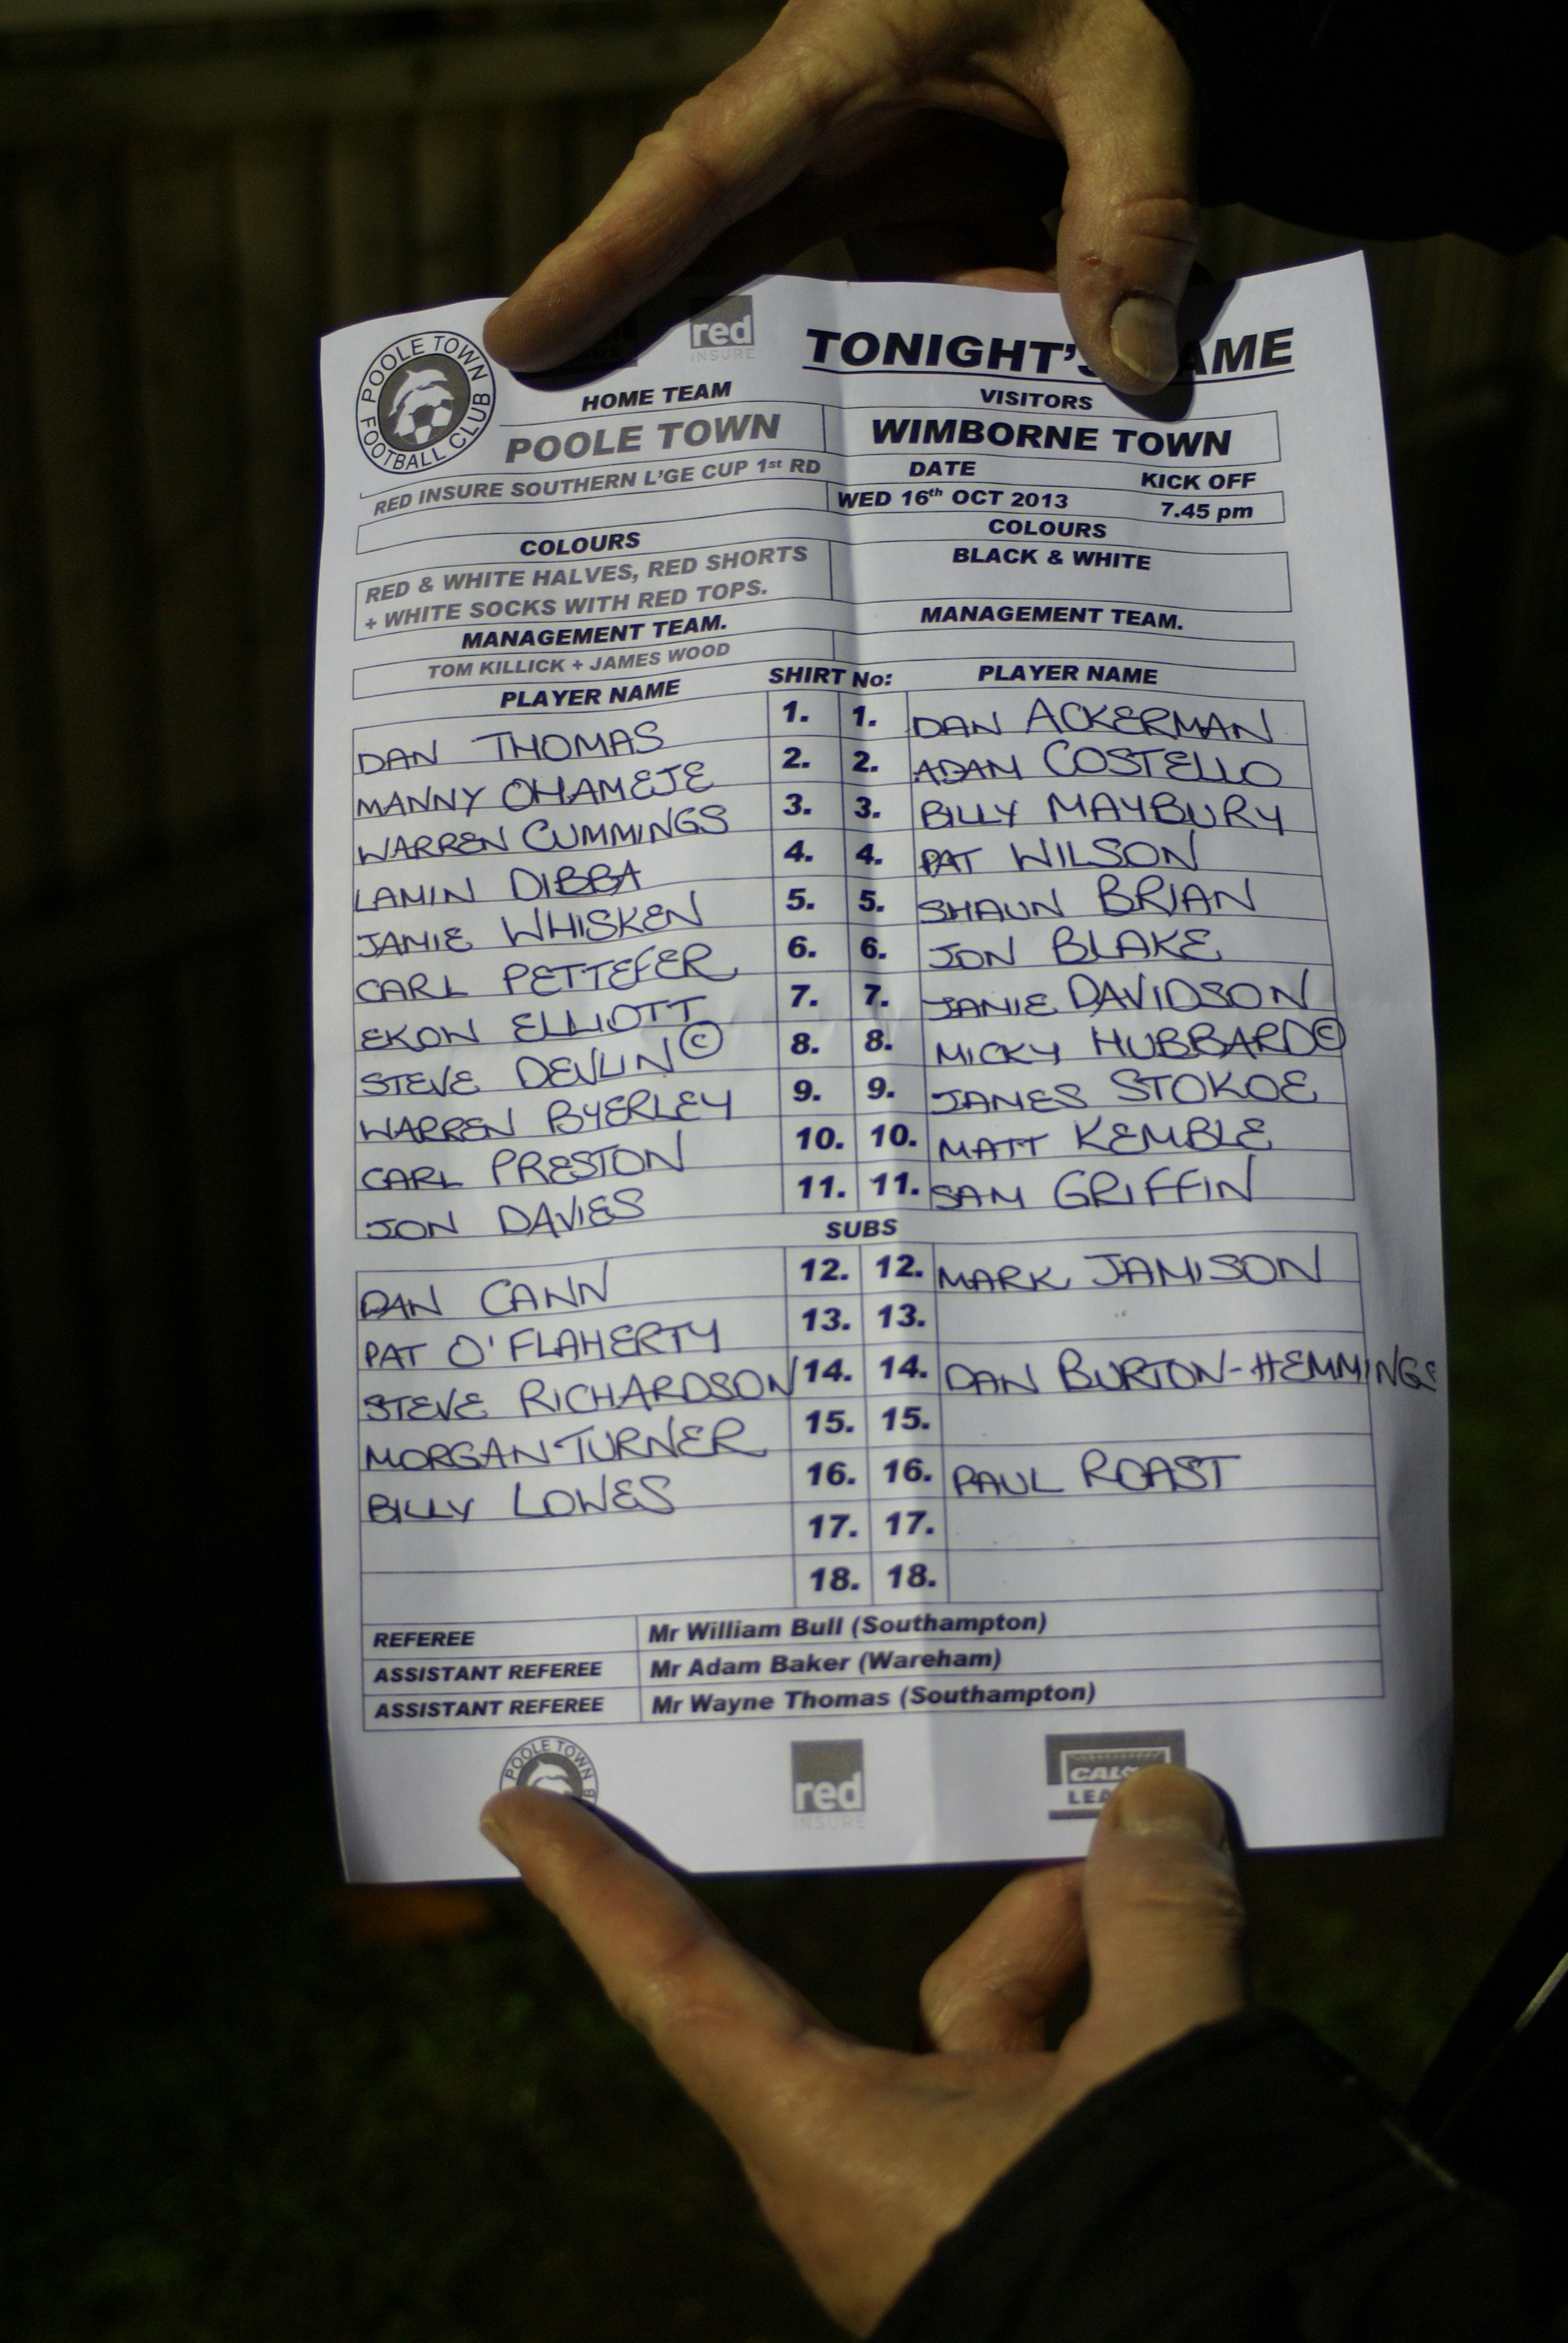 POOLE TOWN FOOTBALL CLUB
red
INSURE
TONIGHT'S GAME
HOME TEAM VISITORS
POOLE TOWN WIMBORNE TOWN
RED INSURE SOUTHERN L'GE CUP 1st RD DATE KICK OFF
WED 16th OCT 2013 7.45 pm
COLOURS COLOURS
RED & WHITE HALVES, RED SHORTS BLACK & WHITE
+ WHITE SOCKS WITH RED TOPS.
MANAGEMENT TEAM. MANAGEMENT TEAM.
TOM KILLICK + JAMES WOOD
PLAYER NAME SHIRT No: PLAYER NAME
DAN THOMAS 1. 1. DAN ACKERMAN
MANNY OHAMEJE 2. 2. ADAM COSTELLO
WARREN CUMMINGS 3. 3. BILLY MAYBURY
LAMIN DIBBA 4. 4. PAT WILSON
JAMIE WHISKEN 5. 5. SHAUN BRIAN
CARL PETTEFER 6. 6. JON BLAKE
EKON ELLIOTT 7. 7. JAMIE DAVIDSON
STEVE DEVLIN © 8. 8. MICKY HUBBARD ©
WARREN BYERLEY 9. 9. JAMES STOKOE
CARL PRESTON 10. 10. MATT KEMBLE
JON DAVIES 11. 11. SAM GRIFFIN
SUBS
DAN CANN 12. 12. MARK JAMISON
PAT O'FLAHERTY 13. 13.
STEVE RICHARDSON 14. 14. DAN BURTON-HEMMINGS
MORGAN TURNER 15. 15.
BILLY LOWES 16. 16. PAUL ROAST
17. 17.
18. 18.
REFEREE Mr William Bull (Southampton)
ASSISTANT REFEREE Mr Adam Baker (Wareham)
ASSISTANT REFEREE Mr Wayne Thomas (Southampton)
POOLE TOWN
red
INSURE